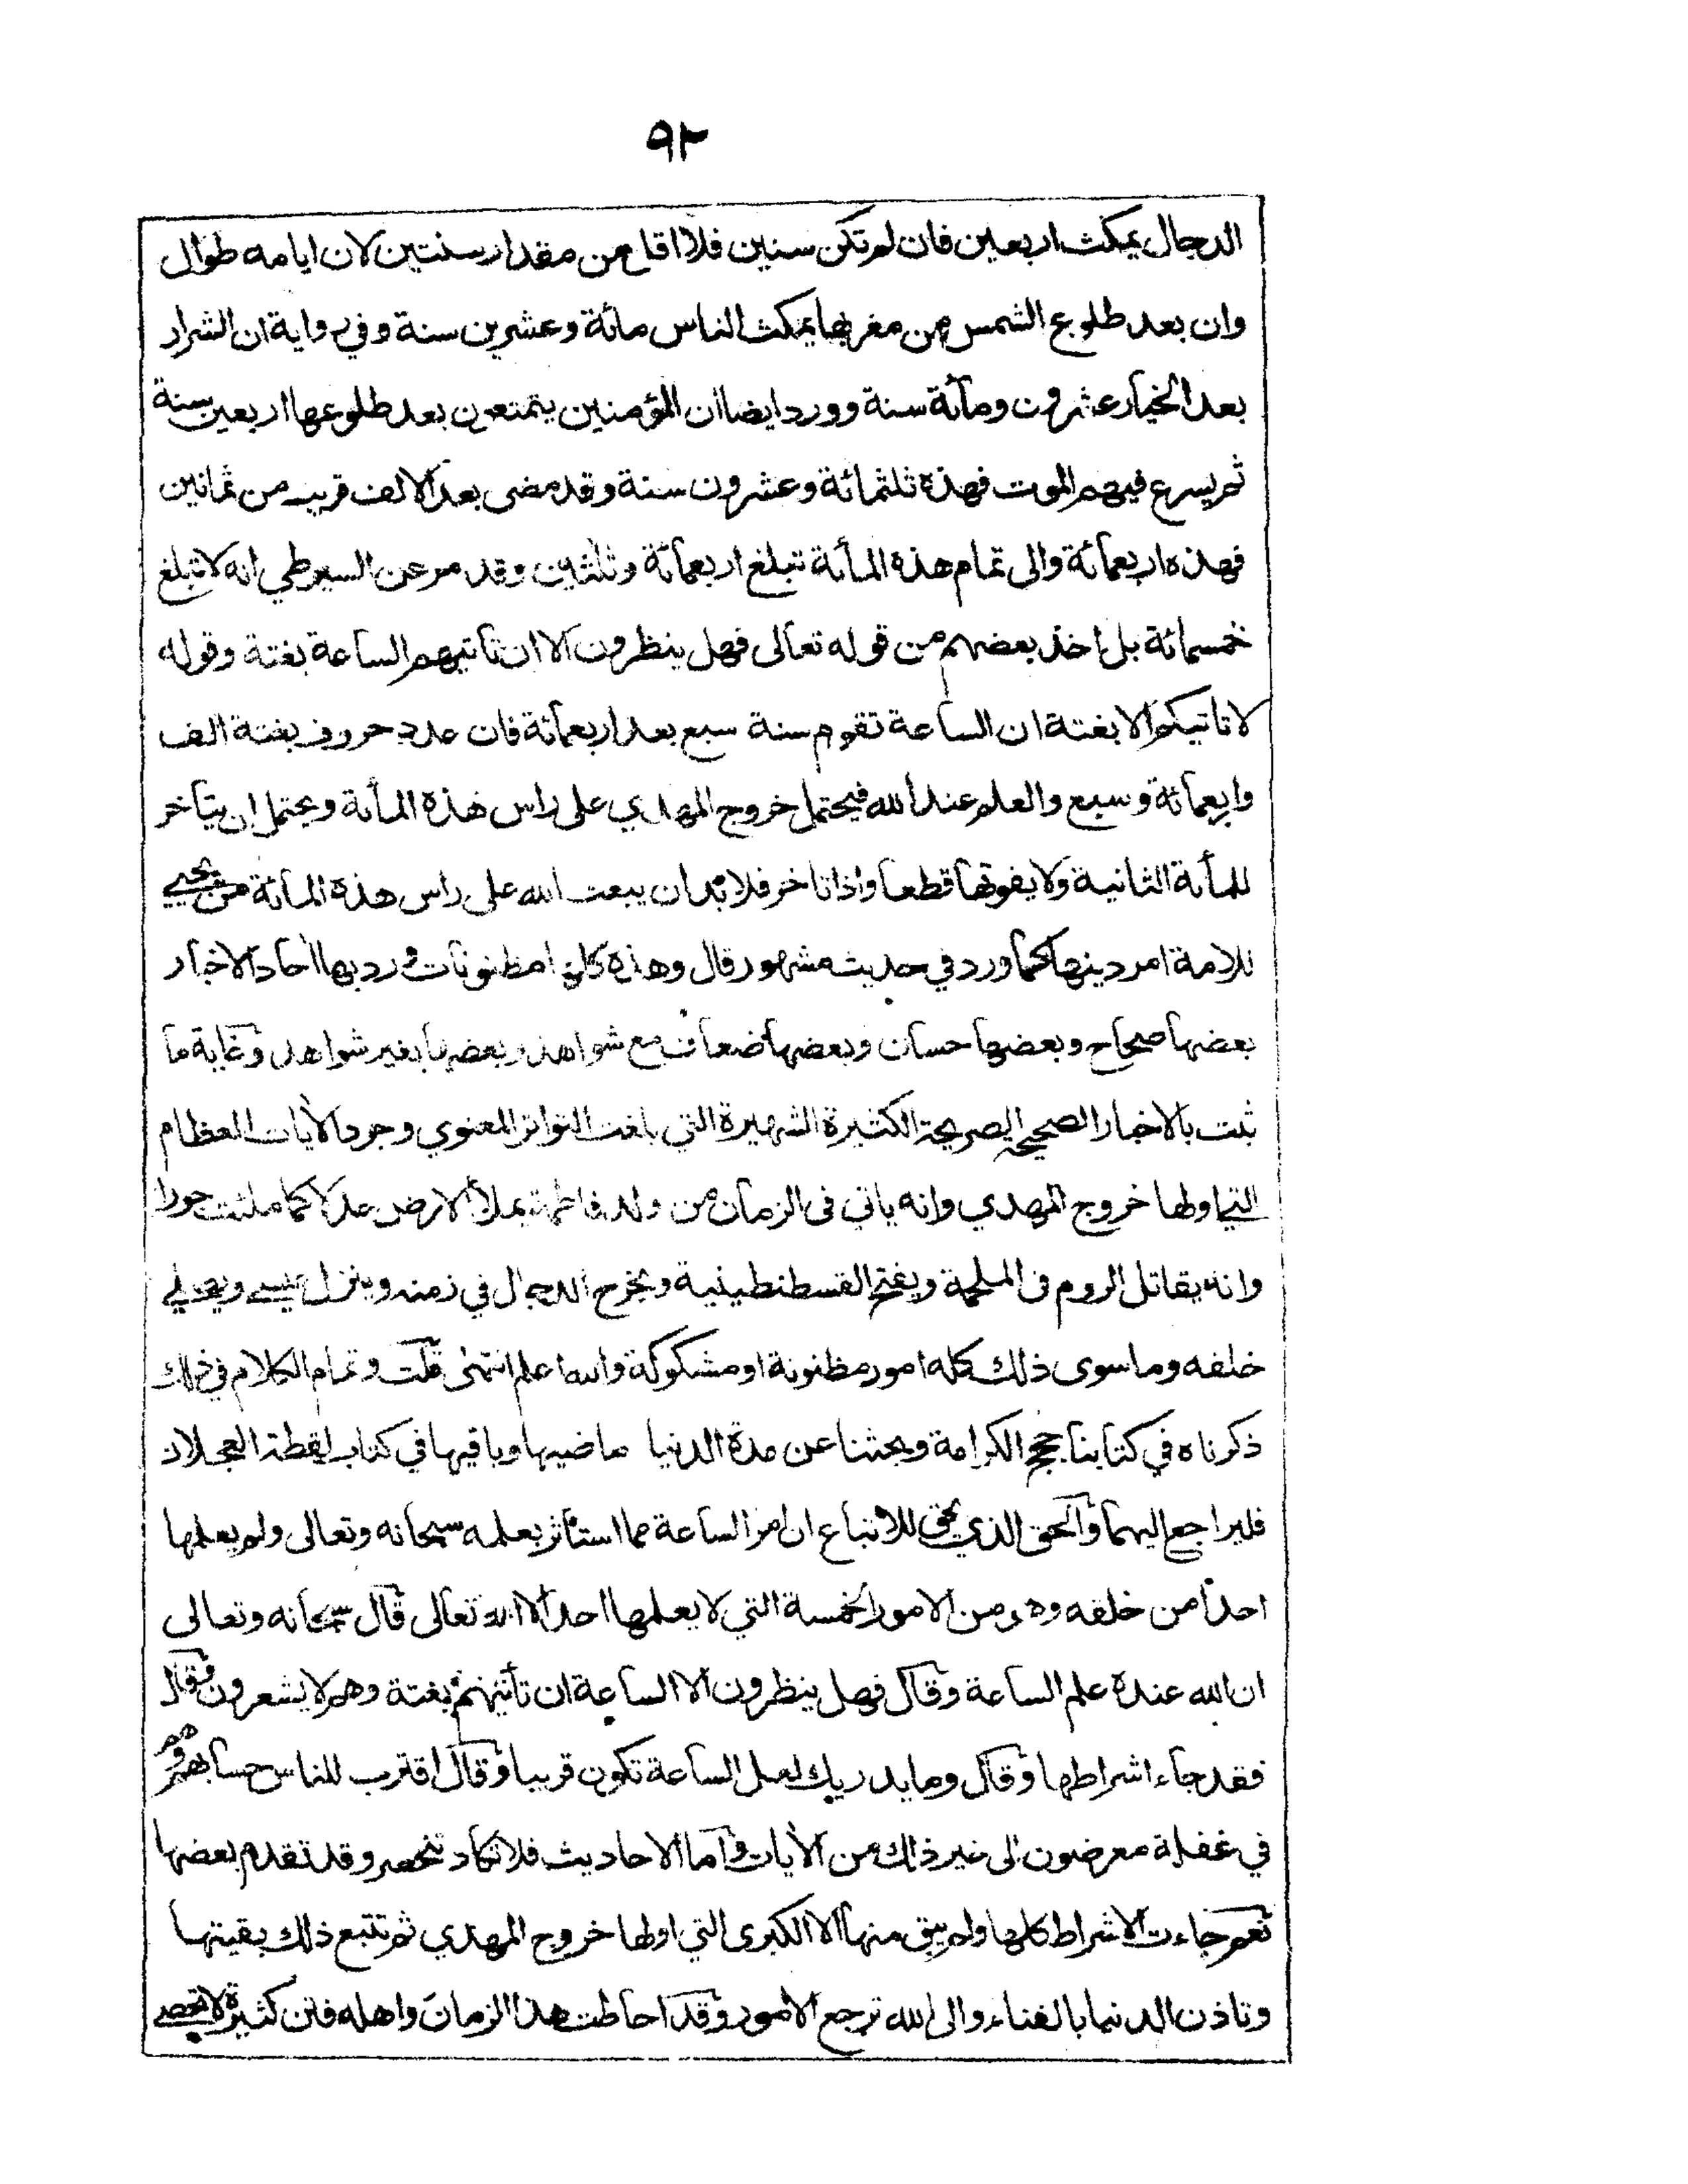 ٩٢
الدجال يمكث اربعين فان لم تكن سنين فلا اقل من مقدار سنتين لان ايامه طوال
وان بعد طلوع الشمس من مغربها يمكث الناس مائة وعشرين سنة وفي رواية ان الشرار
بعد الخيار عشرون ومائة سنة وورد ايضا ان المؤمنين يتمتعون بعد طلوعها اربعين سنة
ثم يسرع فيهم الموت فهذه ثلثمائة وعشرون سنة وقد مضى بعد الالف قريب من ثمانين
فهذه اربعمائة والى تمام هذه المأئة تبلغ اربعمائة وثلثين وقد مر عن السيوطي انه لا تبلغ
خمسمائة بل اخذ بعضهم من قوله تعالى فهل ينظرون الا ان تأتيهم الساعة بغتة وقوله
لا تاتيكم الا بغتة ان الساعة تقوم سنة سبع بعد اربعمائة فان عدد حروف بغتة الف
واربعمائة وسبع والعلم عند الله فيحتمل خروج المهدي على راس هذه المأئة ويحتمل ان يتأخر
للمأئة الثانية ولا يفوتها قطعا واذا تاخر فلا بد ان يبعث الله على راس هذه المأئة من يحيي
للامة امر دينها كما ورد في حديث مشهور قال وهذه كلها مظنونات ورد بها احاد الاخبار
بعضها صحاح وبعضها حسان وبعضها ضعاف مع شواهد وبعضها بغير شواهد وغاية ما
ثبت بالاخبار الصحيحة الصريحة الكثيرة الشهيرة التي بلغت التواتر المعنوي وجود الأيات العظام
التي اولها خروج المهدي وانه ياتي في الزمان من ولد فاطمة يملأ الارض عدلا كما ملئت جورا
وانه يقاتل الروم في الملحمة ويفتح القسطنطينية ويخرج الدجال في زمنه وينزل عيسے ويصلے
خلفه وما سوى ذلك كله امور مظنونة او مشكوكة والله اعلم انتهى قلت وتمام الكلام في ذلك
ذكرناه في كتابنا حجج الكرامة وبحثنا عن مدة الدنيا ماضيها وباقيها في كتاب لقطة العجلان
فليراجع اليهما والحق الذي يحق للاتباع ان امر الساعة مما استأثر بعلمه سبحانه وتعالى ولم يعلمها
احدا من خلقه وهي من الامور الخمسة التي لا يعلمها احد الا الله تعالى قال سبحانه وتعالى
ان الله عنده علم الساعة وقال فهل ينظرون الا الساعة ان تأتيهم بغتة وهم لا يشعرون وقال
فقد جاء اشراطها وقال وما يدريك لعل الساعة تكون قريبا وقال اقترب للناس حسابهم وهم
في غفلة معرضون الى غير ذلك من الأيات واما الاحاديث فلا تكاد تنحصر وقد تقدم بعضها
نعم جاءت الاشراط كلها ولم يبق منها الا الكبرى التي اولها خروج المهدي ثم تتبع ذلك بقيتها
وتاذن الدنيا بالفناء والى الله ترجع الامور وقد احاطت هذا الزمان واهله فتن كثيرة لا تحصے